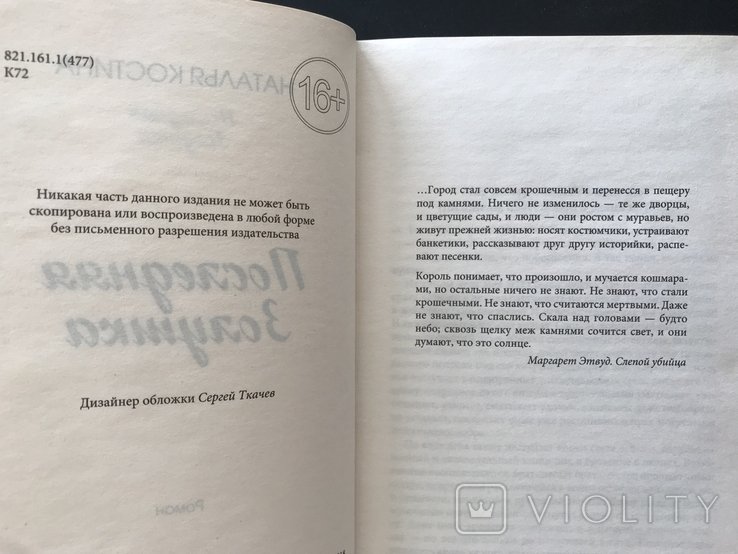 821.161.1(477)
К72
НАТАЛЬЯ КОСТИНА
16+
Никакая часть данного издания не может быть
скопирована или воспроизведена в любой форме
без письменного разрешения издательства
Последняя
Золушка
Дизайнер обложки Сергей Ткачев
РОМАН
…Город стал совсем крошечным и перенесся в пещеру
под камнями. Ничего не изменилось — те же дворцы,
и цветущие сады, и люди — они ростом с муравьев, но
живут прежней жизнью: носят костюмчики, устраивают
банкетики, рассказывают друг другу историйки, распе-
вают песенки.
Король понимает, что произошло, и мучается кошмара-
ми, но остальные ничего не знают. Не знают, что стали
крошечными. Не знают, что считаются мертвыми. Даже
не знают, что спаслись. Скала над головами — будто
небо; сквозь щелку меж камнями сочится свет, и они
думают, что это солнце.
Маргарет Этвуд. Слепой убийца
VIOLITY